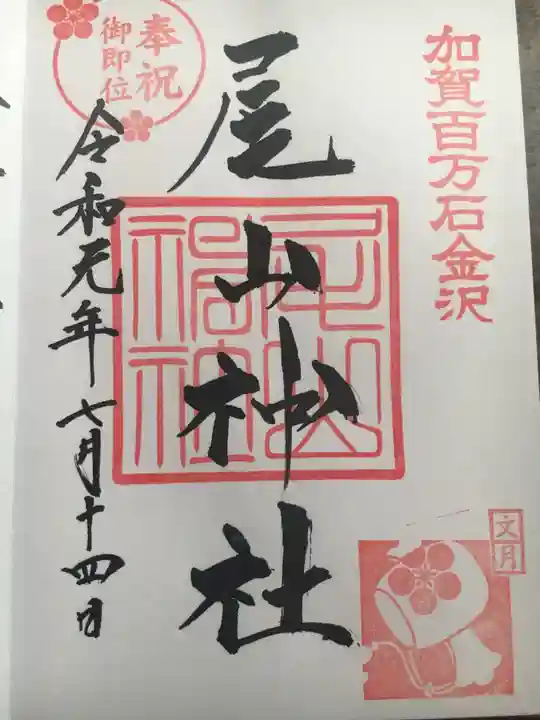 加賀百万石金沢
文月
尾山神社
尾山神社
奉祝
御即位
令和元年七月十四日